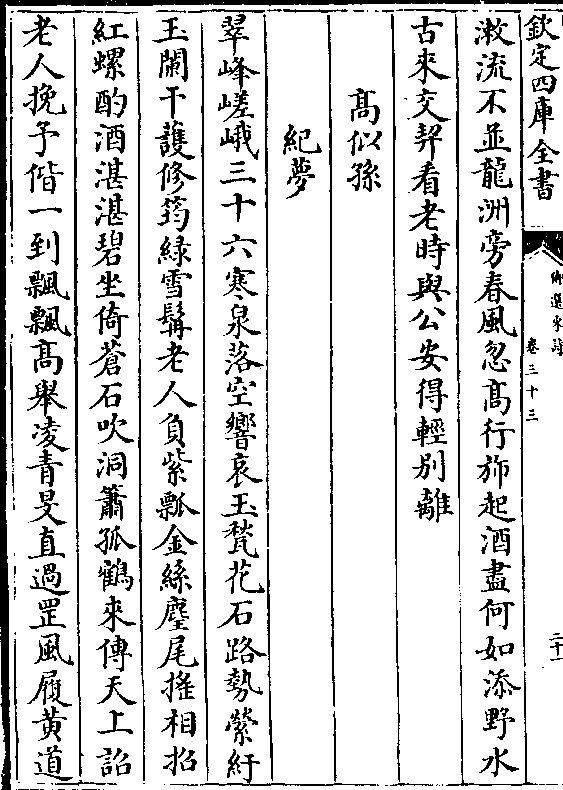 欽定四庫全書
御選宋詩
卷三十三
二十一
漱流不並龍洲旁春風忽髙行斾起酒盡何如添野水
古來交契看老時與公安得輕别離
髙似孫
紀夢
翠峰嵯峨三十六寒泉落空響哀玉甃花石路勢縈紆
玉闌干護修筠緑雪髯老人負紫瓢金絲麈尾揺相招
紅螺酌酒湛湛碧坐倚蒼石吹洞簫孤鶴來傳天上詔
老人挽予偕一到飄飄髙舉凌青旻直過罡風履黄道